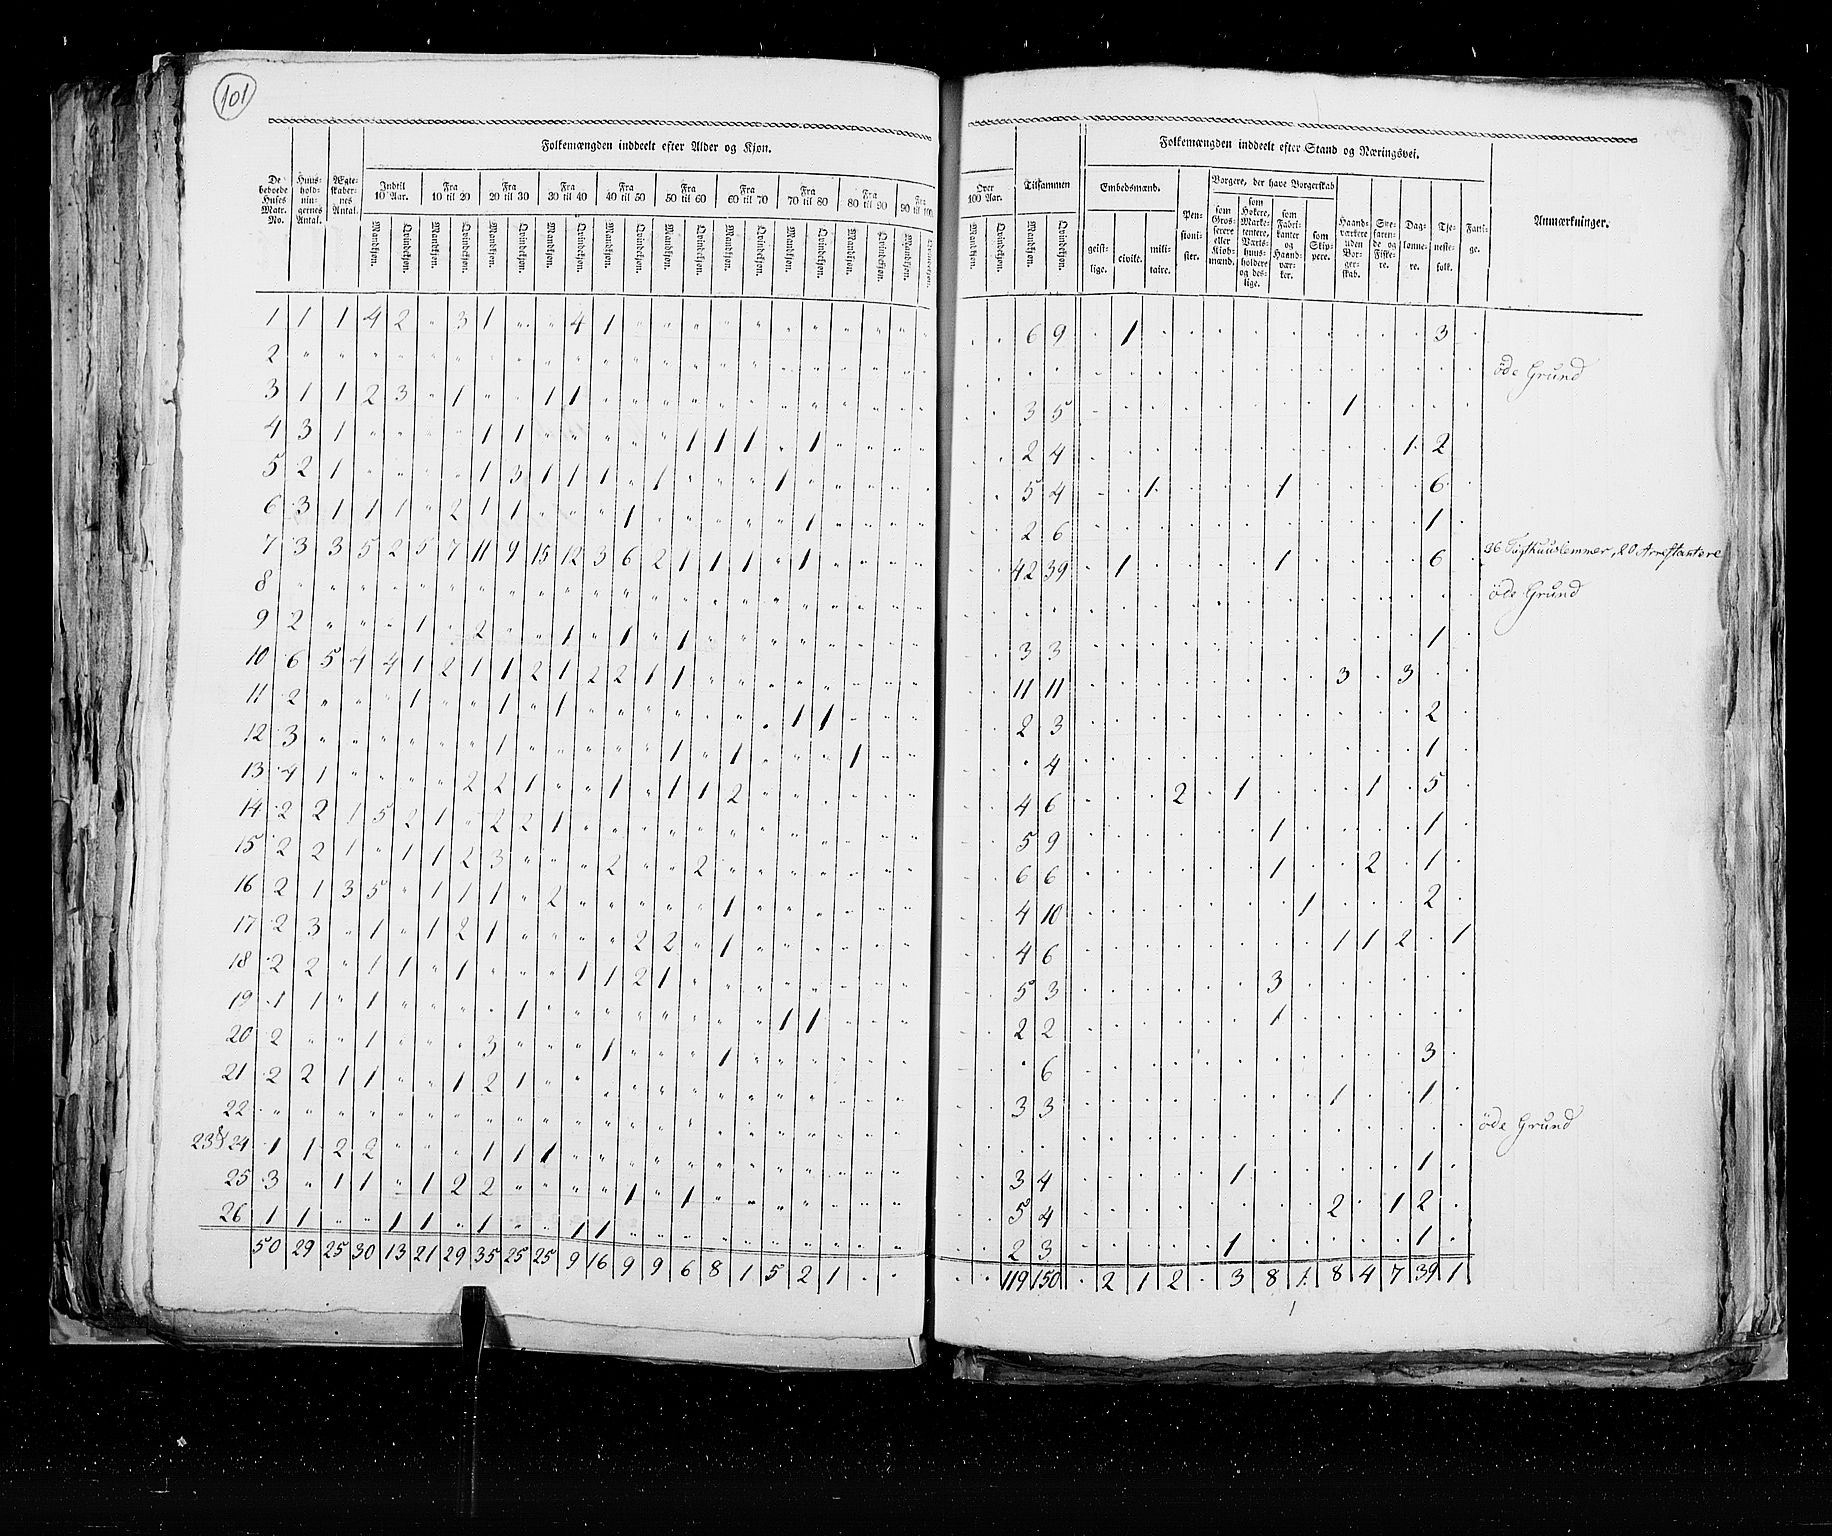 101
Folkemængden inddeelt efter Alder og Kjøn.
De beboede Huses Matr. No. | Huus-hold-nin-gernes Antal. | Ægte-skaber-nes Antal. | Indtil 10 Aar. | Fra 10 til 20 | Fra 20 til 30 | Fra 30 til 40 | Fra 40 til 50 | Fra 50 til 60 | Fra 60 til 70 | Fra 70 til 80 | Fra 80 til 90 | Fra 90 til 100
Mandkjøn. Qvindekjøn. Mandkjøn. Qvindekjøn. Mandkjøn. Qvindekjøn. Mandkjøn. Qvindekjøn. Mandkjøn. Qvindekjøn. Mandkjøn. Qvindekjøn. Mandkjøn. Qvindekjøn. Mandkjøn. Qvindekjøn. Mandkjøn. Qvindekjøn. Mandkjøn. Qvindekjøn.
1 1 1 4 2 " 3 1 " " 4 1
2
3 1 1 2 3 " 1 " " 1 1
4 3 1 " " " " 1 1 " " " " " 1 1 1 " 1
5 2 1 " " " " 1 3 1 1 1 " 1 " " " 1
6 3 1 1 1 " 2 1 1 " " " 1 " " " " " 1
7 3 3 5 2 5 7 11 9 15 12 3 6 2 1 1 1 " 1
8
9 2 " " " 1 " 2 " " 1 " 1 " 1
10 6 5 4 4 1 2 1 1 2 1 2 2 1 1
11 2 " " " 1 " " 1 " 1 " " " " " " " 1 1
12 3 " " " " " " 1 " " " " " 1 " 1 " " " 1
13 4 1 " " " " 2 2 1 " " 1 " 1 1 2
14 2 2 1 5 2 1 " 2 2 1
15 2 2 1 " 1 1 2 3 " " " 2 " " 2
16 2 1 3 5 " 1 1 1 " 2 " " " " " 1
17 2 3 " 1 " 1 2 1 " " " " 2 2 " 1
18 2 2 " 1 1 " 1 " " " 1 1 2 1
19 1 1 " 1 " " " " 1 " " " " " " " " 1 1
20 2 " " 1 " " " 3 " " " 1 " " " 1
21 2 2 1 1 " " 1 2 1
22
23 & 24 1 1 2 2 " " " 1 1 1
25 3 " 1 1 " 1 2 2 " " " " 1 " 1
26 1 1 " " 1 1 " 1 " " 1 1
50 29 25 30 13 21 29 35 25 25 9 16 9 9 6 8 1 5 2 1 . .
Folkemængden inddeelt efter Stand og Næringsvei.
Over 100 Aar. | Tilsammen | Embedsmænd. | Pen-sioni-ster. | Borgere, der have Borgerskab | Haand-værkere uden Bor-ger-skab. | Søe-faren-de og Fiske-re. | Dag-lønne-re. | Tje-neste-folk. | Fatti-ge. | Anmærkninger.
Mandkjøn. Qvindekjøn. Mandkjøn. Qvindekjøn. geist-lige. civile. mili-taire. som Gros-serere eller Kiøb-mænd. som Høkere, Marke-tentere, Værts-huus-holdere og des-lige. som Fabri-kanter og Haand-vær-ker. som Skip-pere.
6 9 . 1 3
öde Grund
3 5 1
2 4 1 2
5 4 1 1 6
2 6 1
42 39 1 1 6 36 Tugthuuslemmer, 20 Arrestantere
öde Grund
3 3 1
11 11 3 3
2 3 2
. 4 1
4 6 2 1 1 5
5 9 1 1
6 6 1 2 1
4 10 1 2
4 6 1 1 2 . 1
5 3 3
2 2 1
. 6 3
3 3 1 1
öde Grund
3 4 1 1
5 4 2 . 1 2
2 3 1 1
119 150 . 2 1 2 . 3 8 1 8 4 7 39 1